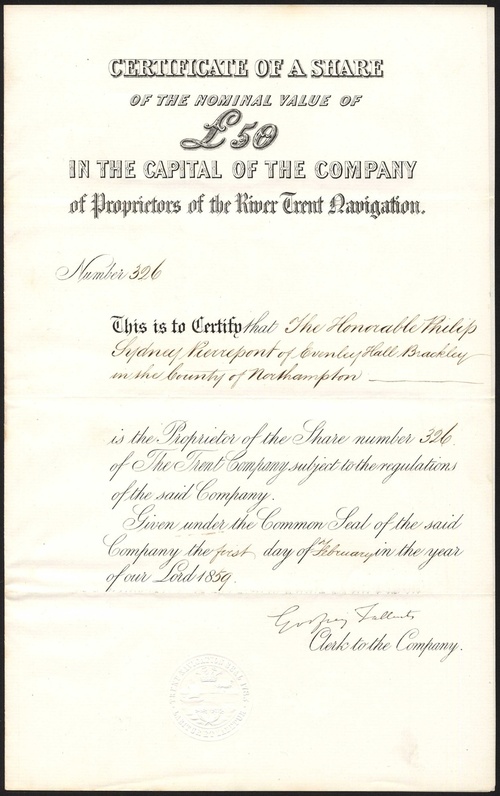 CERTIFICATE OF A SHARE
OF THE NOMINAL VALUE OF
£50
IN THE CAPITAL OF THE COMPANY
of Proprietors of the River Trent Navigation.
Number 326
This is to Certify that The Honorable Philip
Sydney Pierrepont of Evenley Hall Brackley
in the County of Northampton
is the Proprietor of the Share number 326.
of The Trent Company subject to the regulations
of the said Company.
Given under the Common Seal of the said
Company the first day of February in the year
of our Lord 1859.
Godfrey Tallents
Clerk to the Company.